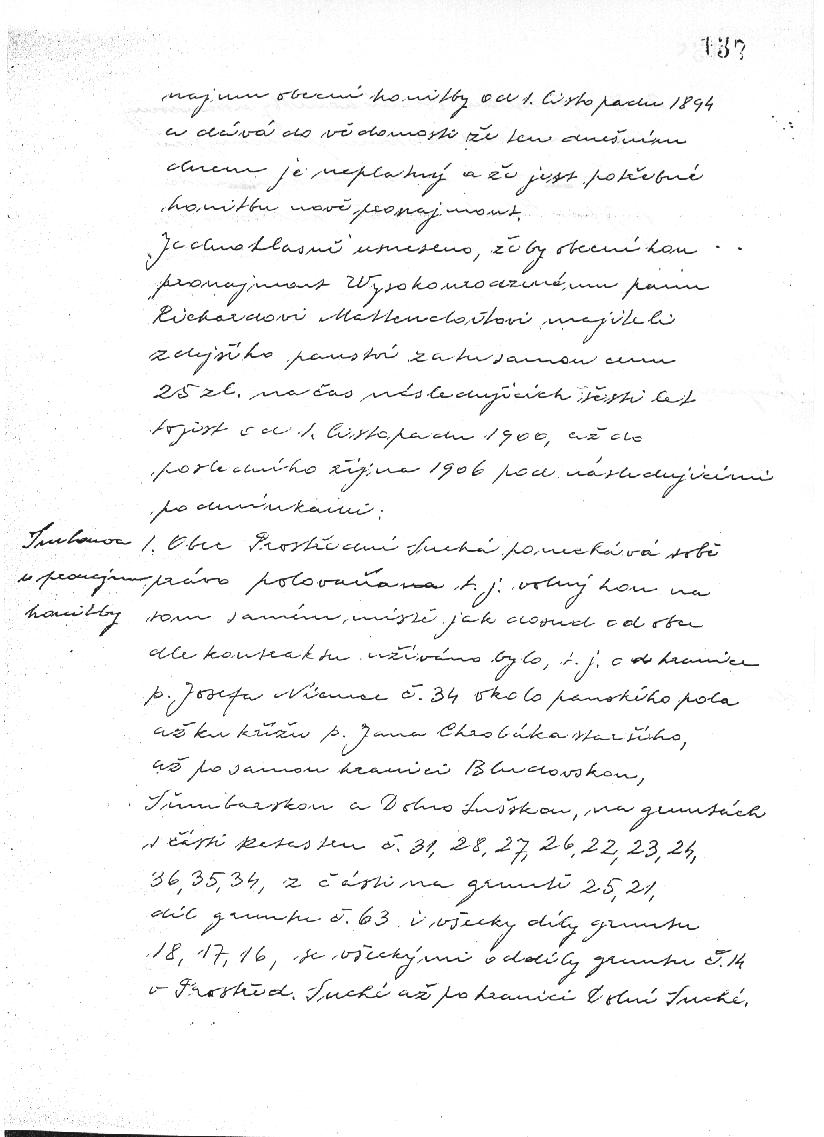 137
najmu obecní honitby od 1. listopadu 1894
a dává do vědomosti že ten dnešním
dnem je neplatný a že jest potřebné
honitbu nově pronajmont.
Jednohlasně usneseno, žeby obecní hon
pronajmont Wysokourozenému pánu
Richardovi Mattencloitovi majiteli
zdejšího panství za tu samou cenu
25 zl. na čas následujících šesti let
tojist od 1. listopadu 1900, až do
posledního října 1906 pod následujícími
podmínkami:
Smlouva
o pronajmu
honitby
1. Obec Prostřední Suchá ponechává sobě
právo polovaňa t. j. volný hon na
tom samém místě jak dosud od obce
dle kontraktu užíváno bylo, t. j. od hranice
p. Josefa Niemce č. 34 okolo panského pola
až ku křížu p. Jana Chrobáka staršího,
až po samou hranici Bludovskou,
Šumbarskou a Dolno Sušskou, na gruntách
s části
č. 31, 28, 27, 26, 22, 23, 24,
36, 35, 34, z části na gruntě 25, 21,
díl gruntu č. 63 i všecky díly gruntu
18, 17, 16, se všeckými oddíly gruntu č. 14
v Prostřed. Suché až po hranici Dolní Suché.